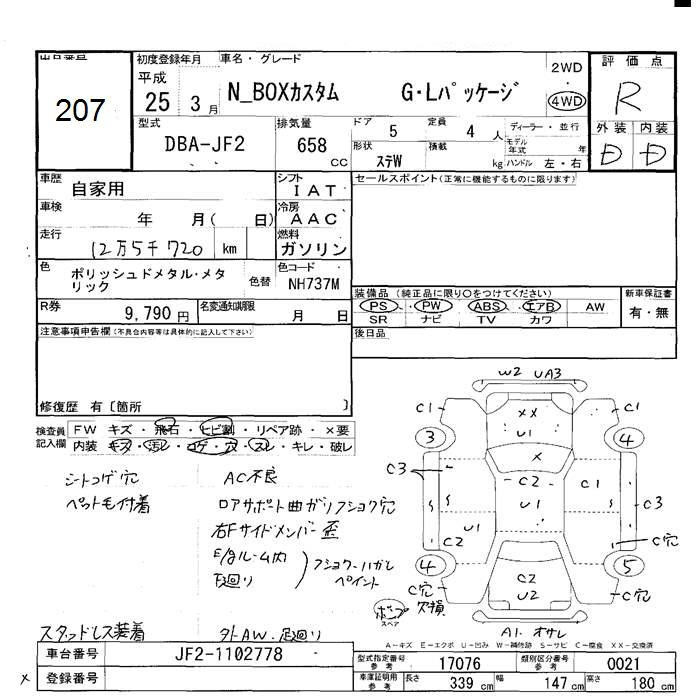 出品番号 初度登録年月 車名・グレード 評価点
207
平成 25 3月
N_BOXカスタム G・Lパッケージ
2WD
4WD
R
型式 DBA-JF2
排気量 658 cc
ドア 5 定員 4 人
形状 ステW 積載 kg
ディーラー・並行
モデル年式 年
ハンドル 左・右
外装 内装
D D
車歴 自家用
シフト IAT
セールスポイント(正常に機能するものに限ります)
車検 年 月( 日)
冷房 AAC
走行 12万5千720 km
燃料 ガソリン
色 ポリッシュドメタル・メタリック 色替
色コード NH737M
装備品 (純正品に限り○をつけてください) 新車保証書
PS PW ABS エアB AW 有・無
SR ナビ TV カワ
R券 9,790円 名変通知期限 月 日
後日品
注意事項申告欄(不具合内容等は具体的に記入して下さい)
修復歴 有〔箇所 〕
検査員記入欄 FW キズ・飛石・ヒビ割・リペア跡・×要
内装 キズ・汚レ・コゲ・穴・スレ・キレ・破レ
シートコゲ穴
ペット毛付着
AC不良
ロアサポート曲ガリフショク穴
右Fサイドメンバー歪
E/gルーム内
下廻り
フショク・ハガレ
ペイント
スタッドレス装着
外AW.足回り
W2 UA3
C1 XX C1
3 U1 4
X
C3 C2 C1
U1 C3
U1
C2 C穴
4 5
C穴 C2 C穴
U2
欠損
スペア
A1. オサレ
A−キズ E−エクボ U−凹み W−補修跡 S−サビ C−腐食 XX−交換済
車台番号 JF2-1102778
登録番号
X
型式指定番号 参考 17076 類別区分番号 参考 0021
車庫証明用 参考 長さ 339 cm 幅 147 cm 高さ 180 cm